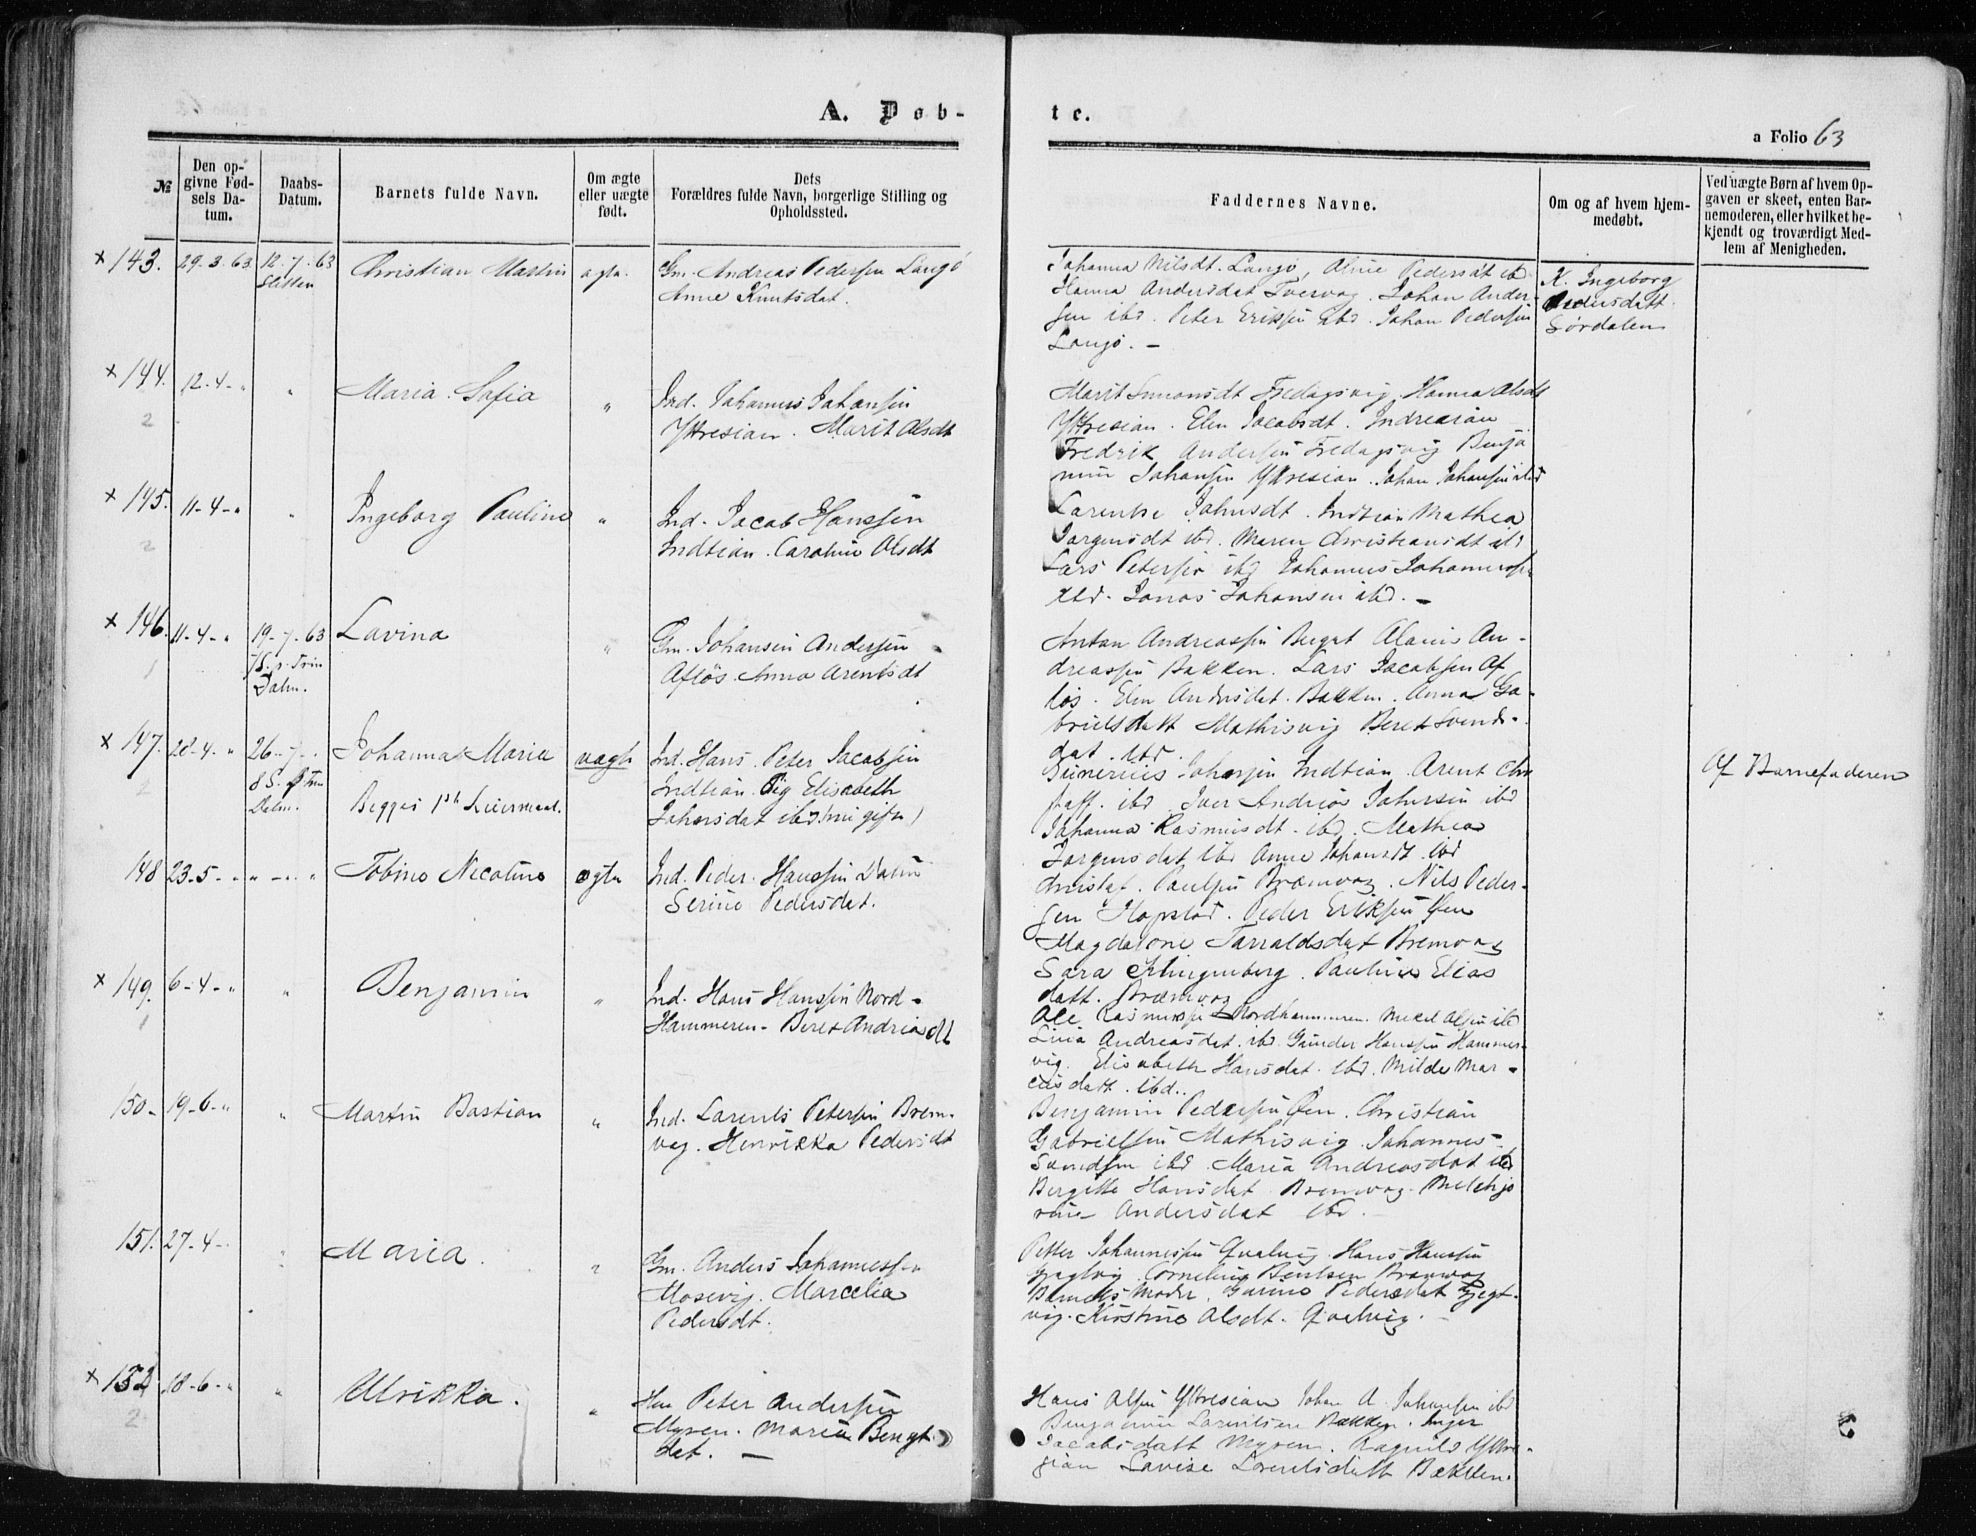 A. Døb-
te.
a Folio 63
№
Den op-
givne Fød-
sels Da-
tum.
Daabs-
Datum.
Barnets fulde Navn.
Om ægte
eller uægte
født.
Dets
Forældres fulde Navn, borgerlige Stilling og
Opholdssted.
Faddernes Navne.
Om og af hvem hjem-
medøbt.
Ved uægte Børn af hvem Op-
gaven er skeet, enten Bar-
nemoderen, eller hvilket be-
kjendt og troværdigt Med-
lem af Menigheden.
× 143. 29.3.63 12.7.63 Christian Martin ægte. Gm. Andreas Pedersen Langø
Anne Knutsdat.
Johanna Nilsdt. Langø, Oline Pedersdt ibd
Hanna Andersdat Tvervag. Johan Ander-
sen ibd. Peter Eriksen ibd. Johan Pedersen
Langø. —
K. Ingeborg
Pedersdatt
Sørdalen
× 144. 12-4-" " Maria Sofia " Ind. Johannes Johansen
2
Yttresian. Marit Olsdt
Marit Simonsdt Fredagsvig, Hanna Olsdt
Yttresian. Elen Jacobsdt. Indresian
Fredrik Andersen Fredagsvig Benja
min Johansen Yttresian. Johan Johansen ibd
× 145. 11-4-" " Ingeborg Pauline " Ind. Jacob Hanssen
2
Indtian. Caroline Olsdt
Larentse Johnsdt. Indtian Mathea
Jørgensdt ibd. Maren Christiansdt ibd
Lars Petersen ibd Johannes Johannessen
ibd. Jonas Johansen ibd. —
× 146. 11-4-" 19-7-63 Lavina " Gm. Johansen Andersen
1
7 S. p. Trin
Dalm.
Afløs. Anna Arentsdt
Anton Andreassen Berget An-
dreassen Bakken. Lars Jacobsen Af
løs. Elen Andersdat. Bakken. Anna Ga-
brielsdatt Mathisvig Beret Svends-
dat. ibd.
× 147. 28-4-" 26-7- Johanna Maria uægte Ind. Hans Peter Jacobsen
2
8 S. p Trin
Dalm.
Begges 1ste Leiermaal.
Indtian. Pig Elisabeth
Johnsdat ibd
Johansen Indtian. Arent
ibd. Iver Andreas Johnsen ibd
Johanna Rasmusdt. ibd. Mathea
Jørgensdat ibd Anne Johansdt ibd
Af Barnefaderen
148 23-5-" "-"-" Tobine Nicoline ægte Ind. Peder Hanssen
Serine Pedersdat.
Paulsen Bremvag. Nils Peder-
sen Hopstad. Peder Eriksen Øen
Magdalone Tarraldsdat Bremvag
Sara Klingenberg. Pauline Elias
datt. Bremvag
× 149. 6-4-" " Benjamin " Ind. Hans Hanssen Nord-
1
Hammeren- Beret Andreasdt
Ole Rasmussen Nordhammeren. Mikel Olsen ibd
Lina Andreasdat. ibd. Gunder Hanssen Hammer-
vig. Elisabeth Hansdat. ibd. Milde Mar-
cusdatt. ibd..
150- 19-6-" " Martin Bastian " Ind. Larents Petersen Brem-
vag. Henrikka Pedersdt
Benjamin Pedersen Øen. Christian
Gabrielsen Mathisvig. Johannes
Svendsen ibd. Maria Andreasdat ibd
Bergitte Hansdat Bremvag. Melchjo
rine Andersdat ibd.
151. 27-4- " Maria. " Gm. Anders Johannessen
Mosevig. Marcelia
Pedersdt.
Petter Johannessen Qvalvig. Hans Hanssen
Gjegtvig. Cornelius Bentsen Bremvag
Barnets Moder. Gurine Pedersdat Gjegt-
vig. Kirstine Olsdt. Qvalvig.
× 152 18-6-" " Ulrikka. " Hm Peter Andersen
2
Myren. Maria Bengt
dat. —
Hans Olsen Yttresian Johan A. Johansen ibd
Benjamin Larentsen Bakken. Inger
Jacobsdatt Myren. Ragnild Yttre-
sian Lovise Lorentsdatt Bakken.